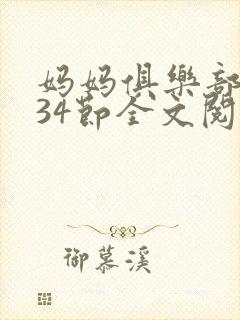 妈妈俱樂部
34節全文閱
御慕溪